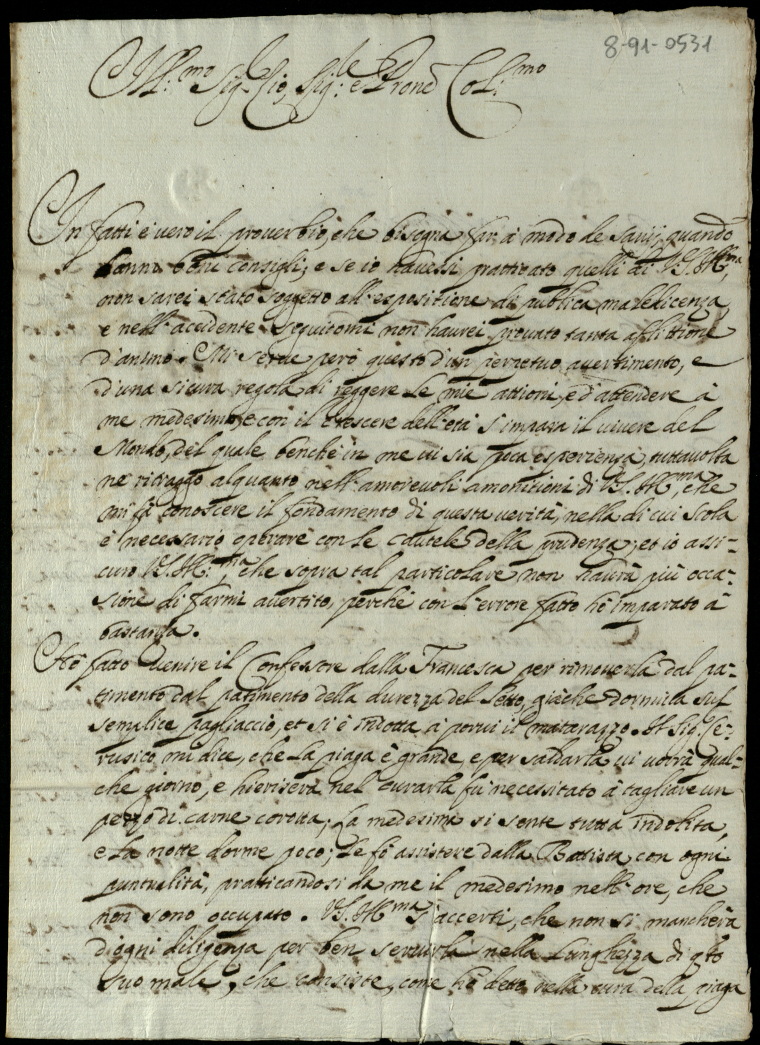 8-91-0531
Ill.mo Sig.r Zio, Sig.re e Pron Col.mo
In fatti è vero il prouerbio, che bisogna far à modo de Sauij, quando
danno boni consigli; e se io hauessi pratticato quelli di V.S. Ill.ma,
non sarei stato soggetto all'espositione di publica maledicenza,
e nell'accidente seguitomi non haurei prouato tanta aflittione
d'animo. Mi serue però questo d'un perpetuo auertimento, e
d'una sicura regola di reggere le mie attioni, e d'attendere à
me medesimo, e con il crescere dell'età s'impara il viuere del
Mondo, del quale benche in me ui sia poca esperienza, tuttauolta
ne ritraggo alquanto nell'amoreuoli amonitioni di V.S. Ill.ma, che
mi fà conoscere il fondamento di questa uerità, nella di cui scola
è necessario oprare con le cautele della prudenza; et io assi-
curo V.S. Ill.ma che sopra tal particolare non haurà più occa-
sione di farmi auertito, perche con l'errore fatto hò imparato à
bastanza.
Hò fatto uenire il Confessore dalla Francesca per rimouerla dal pa-
timento dal patimento della durezza del letto, giache dormiua sul
semplice pagliaccio, et si è indotta à porui il matarazzo. Il Sig. Ce-
rusico mi dice, che la piaga è grande, e per saldarla ui uorrà qual-
che giorno, e hierisera nel curarla fù necessitato à tagliare un
pezzo di carne corotta; la medesima si sente tutta indolita,
e la notte dorme poco; le fò assistere dalla Battista con ogni
puntualità, pratticandosi da me il medesimo nell'ore, che
non sono occupato. V.S. Ill.ma s'accerti, che non si mancherà
d'ogni diligenza per ben seruirla nella lunghezza di qto
suo male, che consiste, come hò detto nella cura della piaga